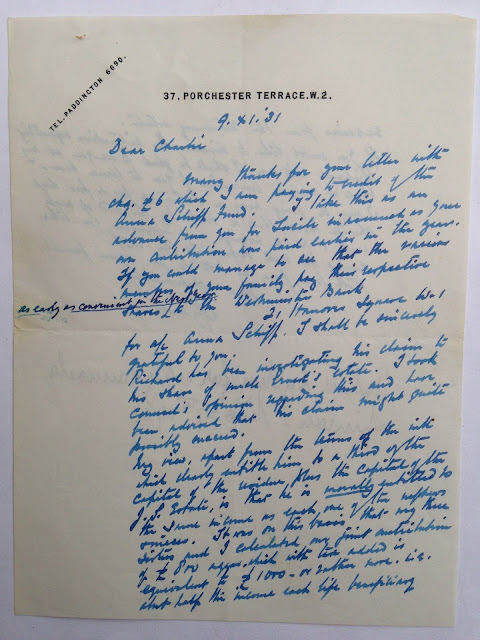 TEL. PADDINGTON 6690.
37, PORCHESTER TERRACE. W.2.
9. XI. '31
Dear Charlie
Many thanks for your letter with
chq. £6 which I am paying to credit of the
Anna Schiff Fund. I like this as an
advance from you for inasmuch as your
own contribution was paid earlier in the year.
If you could manage to see that the various
members of your family pay their respective
as early as convenient in the New Year
shares to the Westminster Bank
21, Hanover Square W.1
for a/c Anna Schiff. I shall be sincerely
grateful to you.
Richard has been investigating his claim to
his share of Uncle Ernest's Estate. I took
Counsel's opinion regarding this and have
been advised that his claim might quite
possibly succeed.
My view, apart from the terms of the will
which clearly entitle him to a third of the
capital of the residue, plus the capital of the
Estate, is that he is morally entitled to
the same income as each one of the nephews
receives. It was on this basis that my three
sisters and I calculated our joint contribution
of £800 which with tax added is
equivalent to £1000 - or rather more. i.e.
about half the income each life beneficiary